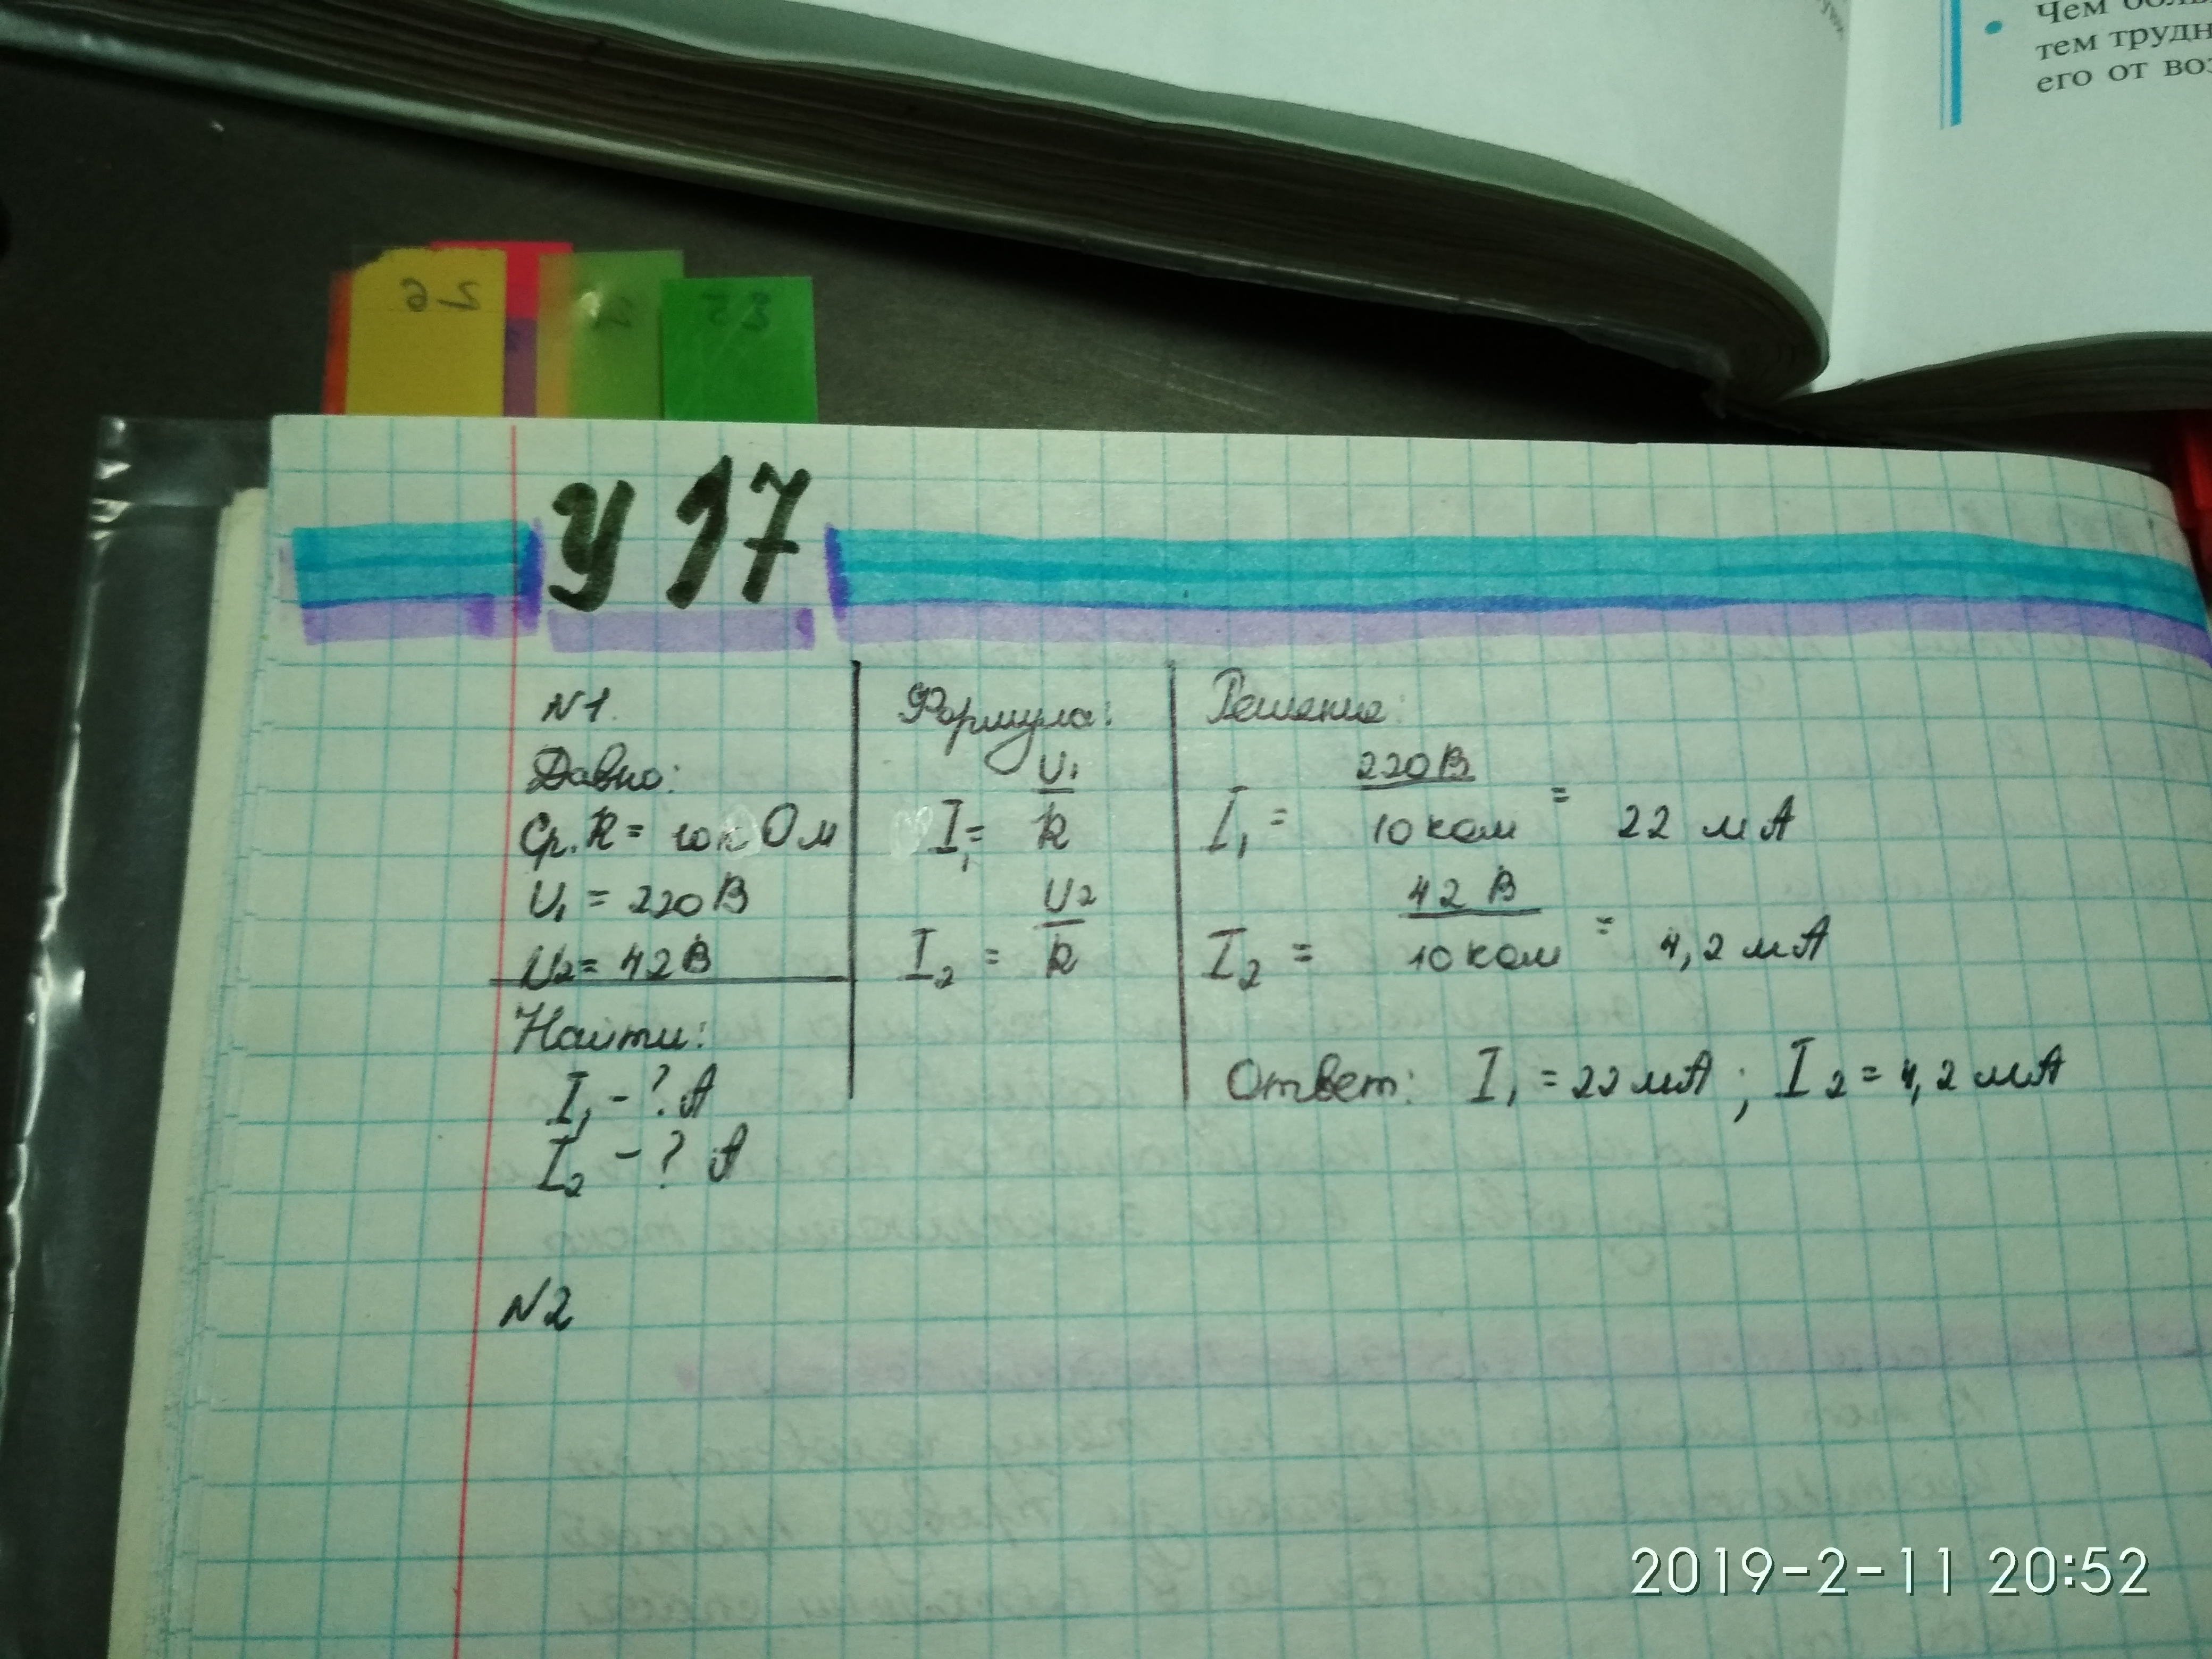 Чем боль
тем трудн
его от воз
26
35
У 17
N1.
Давно:
Ср. R = 10 к Ом
U₁ = 220 В
U₂ = 42 В
Найти:
I₁ - ? А
I₂ - ? А
Формула:
I₁ = U₁ / R
I₂ = U₂ / R
Решение:
I₁ = 220 В / 10 ком = 22 мА
I₂ = 42 В / 10 ком = 4,2 мА
Ответ: I₁ = 22 мА ; I₂ = 4,2 мА
N2
2019-2-11 20:52